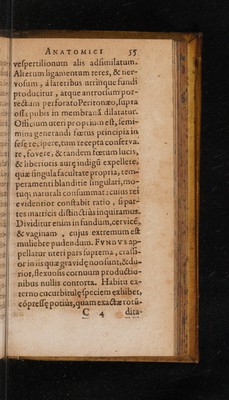 ANATOMICI 55
vespertilionum alis adsimilatum.
Alterum ligamentum teres, & ner-
vosum, à lateribus utrinque fundi
producitur, atque antrorsum por-
rectum perforato Peritonæo, supra
ossa pubis in membranã dilatatur.
Officium uteri proprium est, semi-
nina generandi fœtus principia in
sese recipere, tum recepta conserva-
re, fovere, & tandem fœtum lucis,
& liberioris auræ indigũ expellere,
quæ singula facultate propria, tem-
peramenti blanditie singulari, mo-
tuq; naturali consummat: cuius rei
evidentior constabit ratio, si par-
tes matricis distinctiùs inquiramus.
Dividitur enim in fundum, cervicẽ,
& vaginam, cujus extremum est
muliebre pudendum. FVNDVS ap-
pellatur uteri pars suprema, crassi-
or in iis quæ gravidę non sunt, & du-
rior, flexuosis cornuum productio-
nibus nullis contorta. Habitu ex-
terno cucurbitulę speciem exhibet,
cõpressę potiùs, quam exactæ rotũ-
C 4 dita-